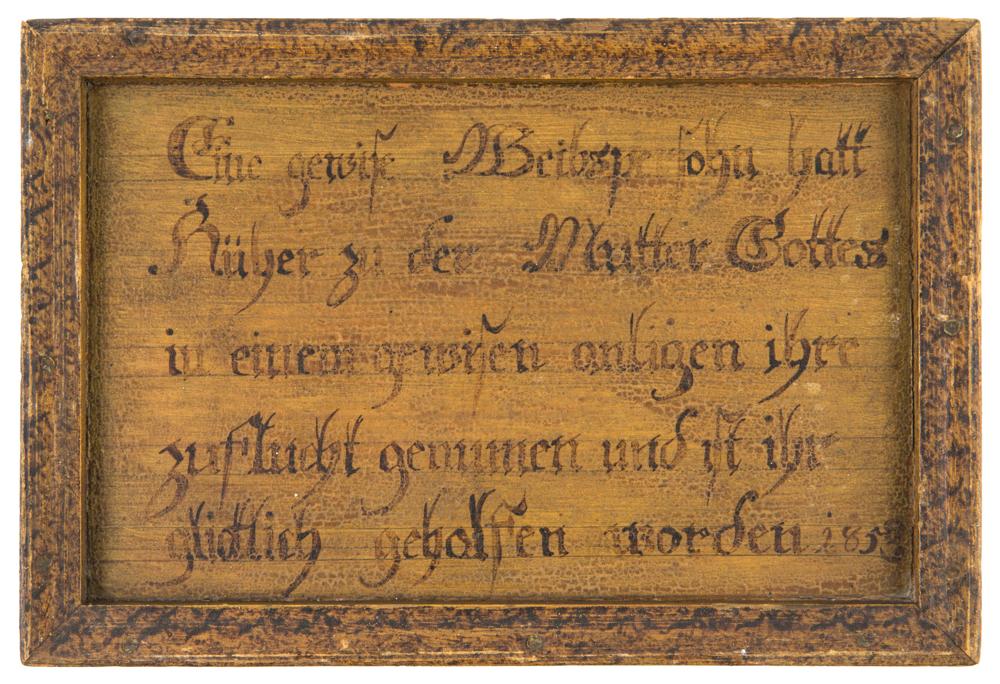 Eine gewise Weibspersohn hatt
Hüher zu der Mutter Gottes
in einem gewisen anligen ihre
zuflucht genumen und ist ihr
glicklich geholfen worden 1853